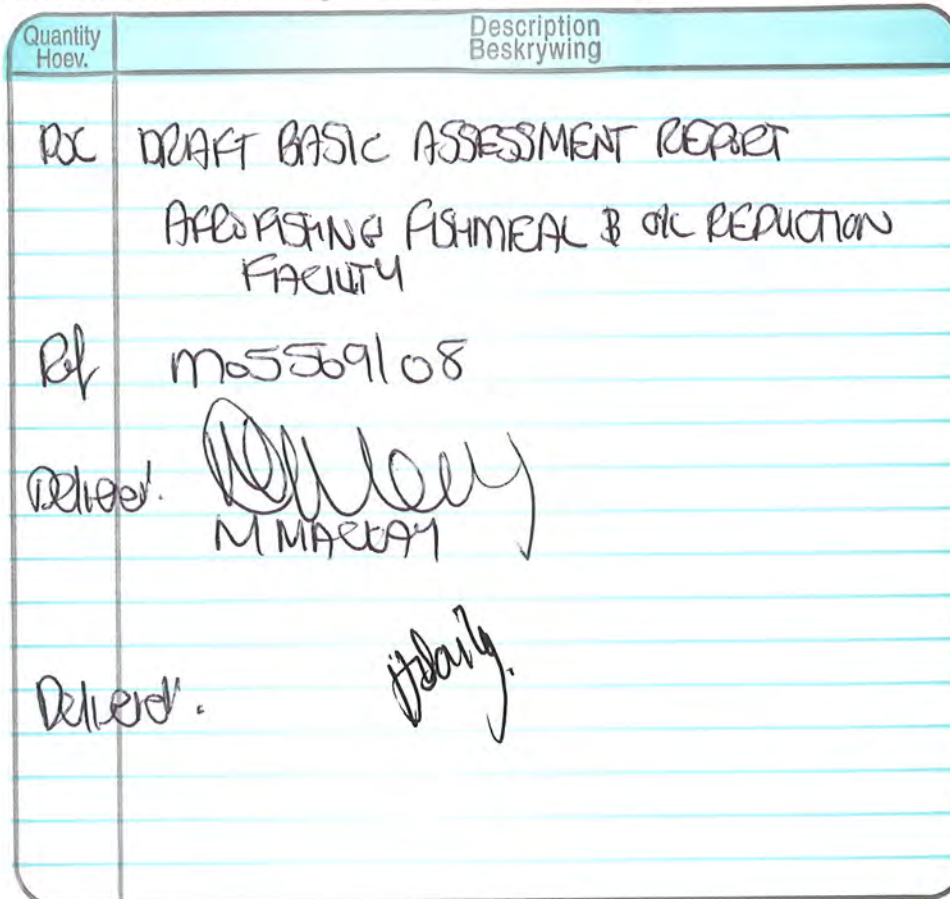 Quantity Description
Hoev. Beskrywing
DOC DRAFT BASIC ASSESSMENT REPORT
AFRO FISHING FISHMEAL & OIL REDUCTION
FACILITY
Ref MO5509/08
Deliver.
M MACKAY
Delivered.